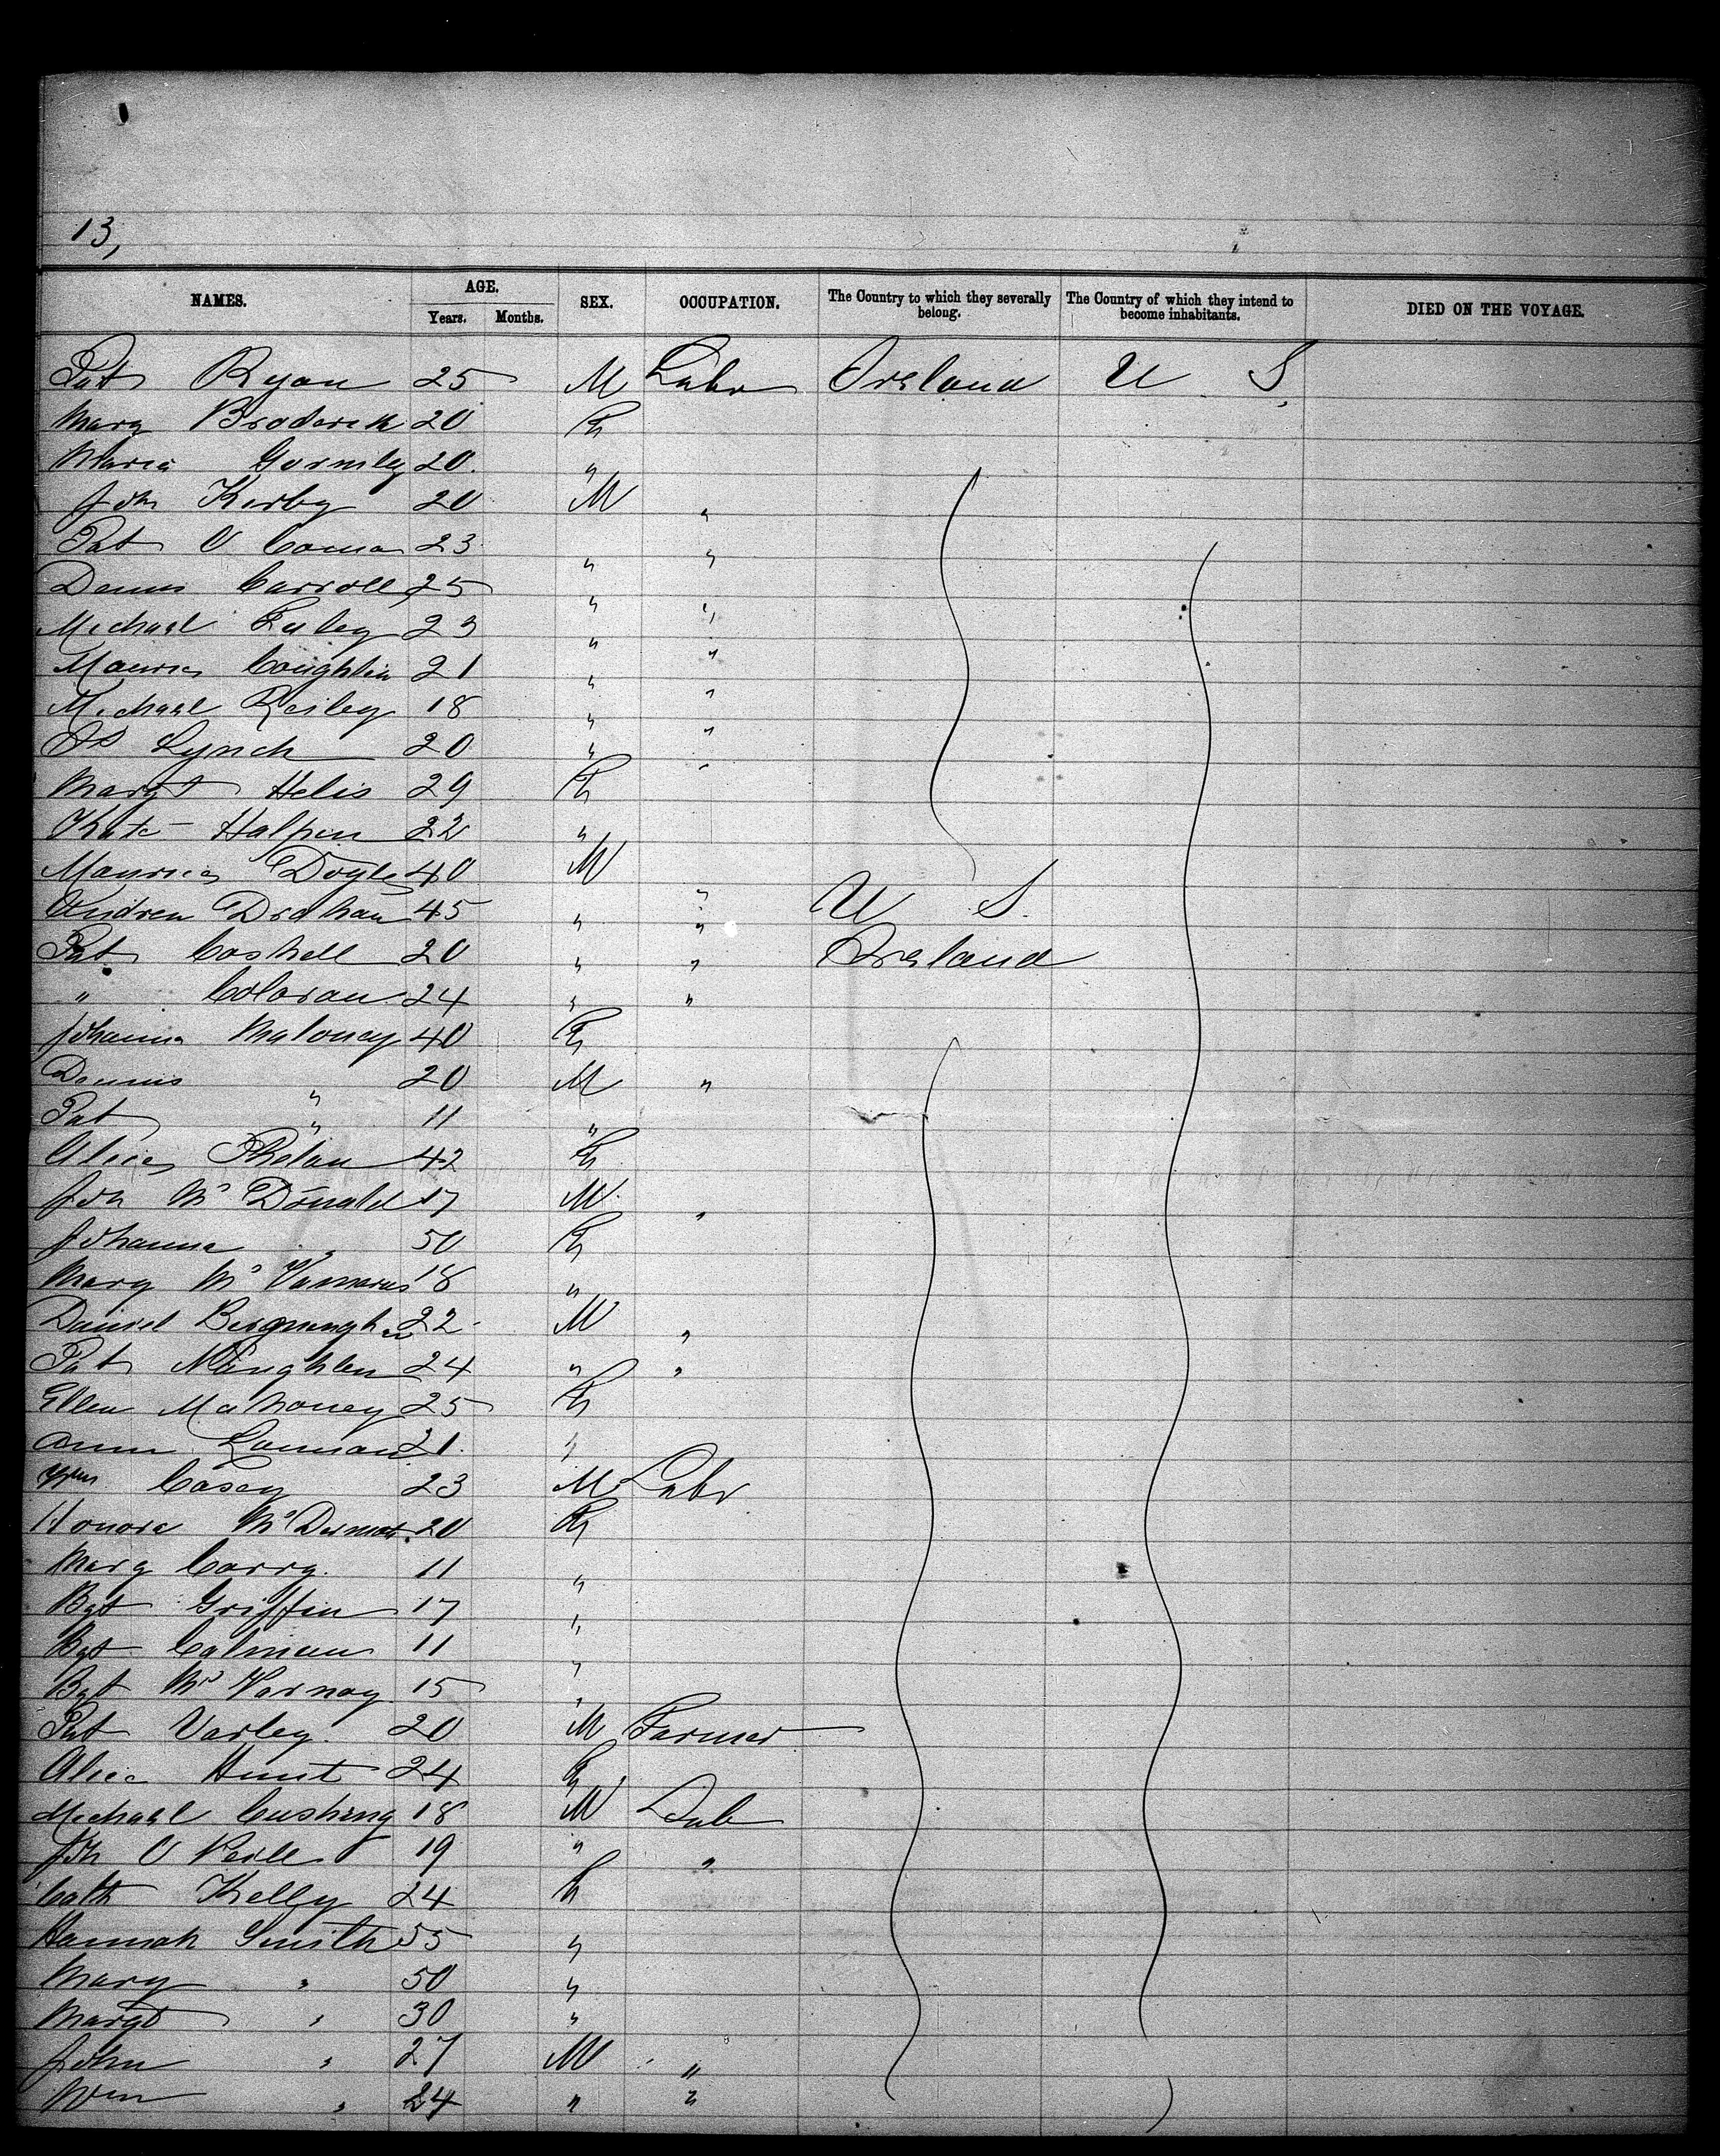 13,
NAMES. AGE. Years. Months. SEX. OCCUPATION. The Country to which they severally belong. The Country of which they intend to become inhabitants. DIED ON THE VOYAGE.
Pat Ryan 25 M Labr Ireland U S
Mary Broderick 20 F
Maria Gormley 20 "
John Kerby 20 M "
Pat O Connor 23 " "
Dennis Carroll 25 " "
Michael 23 " "
Maurice Coughlin 21 " "
Michael Reiley 18 " "
Lynch 20 " "
Margt Helis 29 F
Kate Halpin 22 "
Maurice Doyle 40 M " U S
Andrew Drohan 45 " "
Pat Coshell 20 " " Ireland
" Coloran 24 " "
Johanna Maloney 40 F
Dennis " 20 M "
Pat " 11 "
Alice Phelan 42 F
John McDonald 17 M "
Johanna " 50 F
Mary Mc 18 "
Daniel 22 M "
Pat 24 " "
Ellen Mahoney 25 F
Ann 21 "
Wm Casey 23 M Labr
Honora McDermott 20 F
Mary Corry 11 "
Bgt Griffin 17 "
Bgt Calman 11 "
Bgt McVarnay 15 "
Pat Varley 20 M Farmer
Alice Hunt 24 F
Michael Cushing 18 M Lab
John O Neill 19 " "
Cath Kelly 24 F
Hannah Smith 55 "
Mary " 50 "
Margt " 30 "
John " 27 M "
Wm " 24 " "